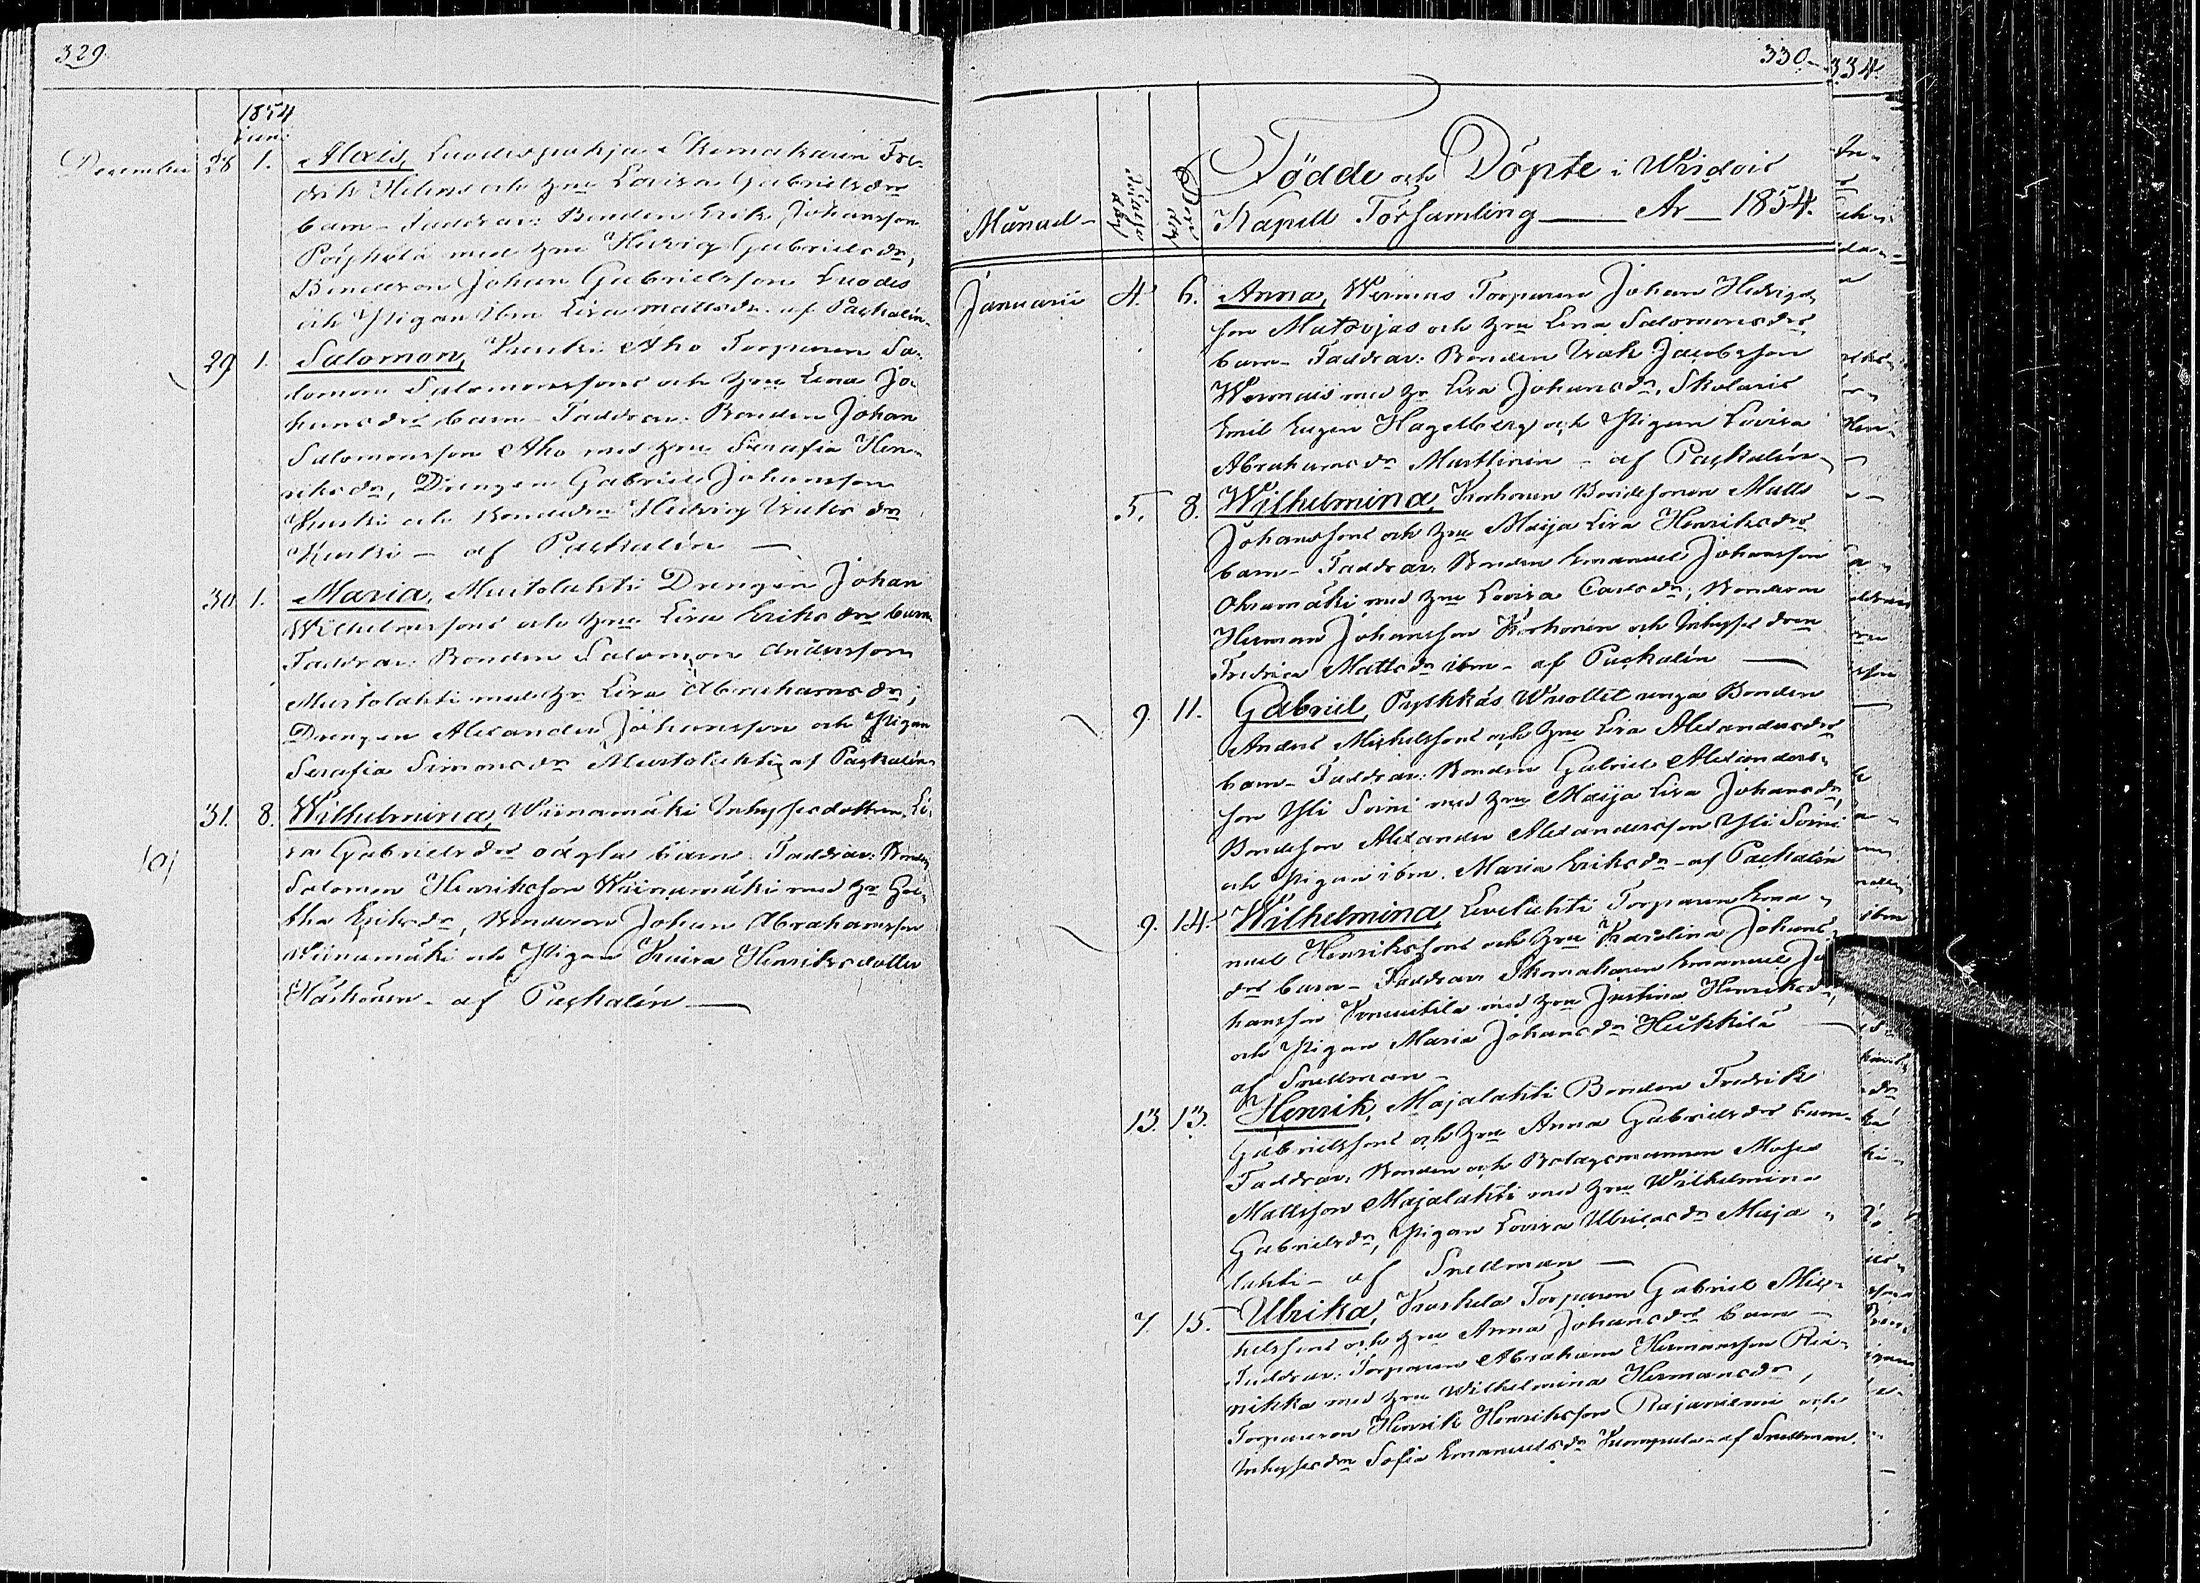 329.
1854
Juni
December 28 1. Alexis, Luodesjärkjä Skomakaren Fre-
drik Helens och hu Lovisa Gabrielsdrs
barn Faddrar: Bonden Erik Johansson
med hu Hedvig Gabrielsdr,
Bondeson Johan Gabrielsson Luodes
och Pigan ibm Lisa Mattsdr. af Paskalin
29 1. Salomon, Kurki Aho Torparen Sa-
lomon Salomonssons och hu Lena Jo-
hansdrs barn Faddrar: Bonden Johan
Salomonsson Aho med hu Serafia Hen-
riksdr, Drengen Gabriel Johansson
Kurki och Bondedn Hedvig Isaksdr
Kurki – af Paskalin –
30 1. Maria, Mustolahti Drengen Johan
Wilhelmssons och hu Lisa Eriksdrs barn
Faddrar: Bonden Salomon Andersson
Mustolahti med hu Lisa Abrahamsdr,
Drengen Alexander Johansson och Pigan
Serafia Simonsdr Mustolahti af Paskalin
31. 8. Wilhelmina, Wiinamäki Inhysesdottren Li-
sa Gabrielsdrs oägta barn Faddrar: Bonden
Salomon Henriksson Wiinamäki med hu
Eriksdr, Bondeson Johan Abrahamsson
Wiinamäki och Pigan Henriksdotter
af Paskalin –
330
334.
Födde och Döpte i Wirdois
Månad Födelse dag Döpelse dag Kapell Församling — År 1854.
Januarii 4. 6. Anna, Wermas Torparen Johan Hedrigs-
son Matovjas och hu Lena Salomonsdrs
barn – Faddrar: Bonden Isak Jacobsson
Wermas med hu Lisa Johansdr, Skolaris
Emil Eugen Hagelberg och Pigan Lovisa
Abrahamsdr Marttinin – af Paskalin
5. 8. Wilhelmina, Korhonen Bondesonen Matts
Johanssons och hu Maija Lisa Henriksdrs
barn – Faddrar: Bonden Emanuel Johansson
Ohramäki med hu Lovisa Carlsdr, Bondeson
Herman Johansson Korhonen och Inhyses drn
Fredrica Mattsdr ibm – af Paskalin —
9. 11. Gabriel, Pyhkkäs Wuollet unga Bonden
Anders Michelssons och hu Lisa Alexandersdrs
barn – Faddrar: Bonden Gabriel Alexanders-
son Yli Soini med hu Maija Lisa Johansdr,
Bondeson Alexander Alexandersson Yli Soini
och Pigan ibm. Maria Eriksdr – af Paskalin
9. 14. Wilhelmina, Levelahti Torparen Ema-
nuel Henrikssons och hu Karolina Johans-
drs barn – Faddrar Skomakaren Emanuel Jo-
hansson med hu Justina Henriksdr,
och Pigan Maria Johansdr Heikkilä —
af Snellman –
13. 13. Henrik, Majalahti Bonden Fredrik
Gabrielssons och hu Anna Gabrielsdrs barn
Faddrar: Bonden och Bolagsmannen Moses
Mattsson Majalahti med hu Wilhelmina
Gabrielsdr, Pigan Lovisa Ulricasdr Maja-
lahti – af Snellman —
7. 15. Ulrika, Koskela Torparen Gabriel Mic-
kelssons och hu Anna Johansdrs barn –
Faddrar: Torparen Abraham Hermansson
med hu Wilhelmina Hermansdr,
Torpareson Henrik Henriksson Rajaniemi och
Inhysesdn Sofia Emanuelsdr Kuompula – af Snellman.